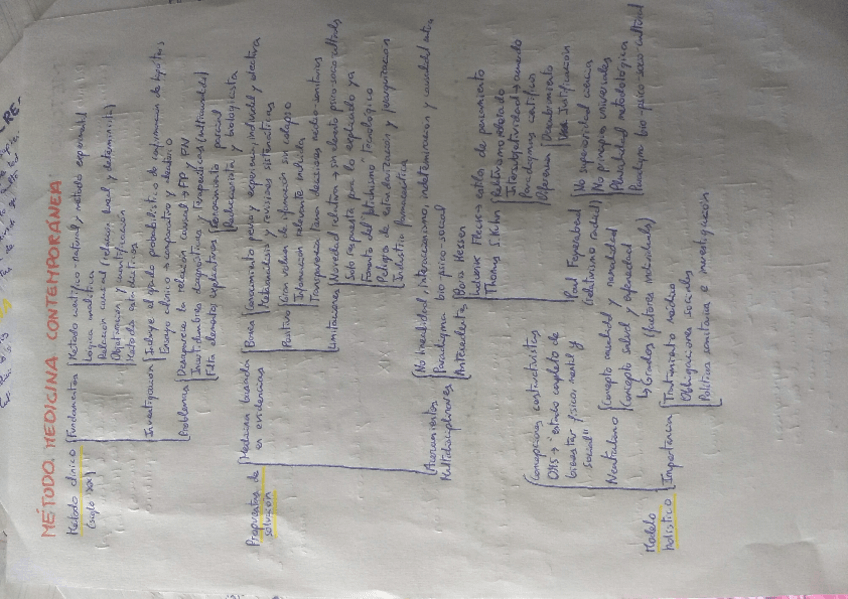 MÉTODO MEDICINA CONTEMPORÁNEA
Método clínico
(siglo XX)
Fundamentos
Método científico-natural y método experimental
Lógica analítica
Relación causal (relación lineal y determinista)
Objetivación y cuantificación
Métodos estadísticos
Investigación
Incluye el grado probabilístico de confirmación de hipótesis
Ensayo clínico → comparativo y aleatorio
Problemas
Desaparece la relación causal → FP y FN
Incertidumbres diagnósticas y terapéuticas
Falta elementos explicativos
Pensamiento parcial
Reduccionista y biologicista
Propuestas de
solución
Medicina basada
en evidencias
Busca
Conocimiento previo y experiencia, individual y colectiva
Metaanálisis y revisiones sistemáticas
Positivo
Gran volumen de información sin colapso
Información relevante incluida
Transparencia para decisiones médico-sanitarias
Limitaciones
Novedad relativa → sin elemento psico-socio-cultural
Solo respuesta por lo explicado ya
Fomento del "fetichismo" tecnológico
Peligro de estandarización y jerarquización
Industria farmacéutica
Acercamientos
Multidisciplinares
No linealidad, interaccionismo, indeterminismo y causalidad
Paradigma bio-psico-social
Antecedentes
Boris Hessen
Ludwik Fleck → estilo de pensamiento
Thomas S. Kuhn
Relativismo moderado
Intersubjetividad → acuerdo
Paradigmas científicos
Diferencia
Descubrimiento
Justificación
Paul Feyerabend
(relativismo radical)
No superioridad ciencia
No principios universales
Pluralidad metodológica
Paradigma bio-psico-socio-cultural
Modelo
holístico
Concepciones constructivistas
OMS → "estado completo de
bienestar físico, mental y
social"
Neutralismo
Concepto maldad y normalidad
Concepto salud y enfermedad
↳ Grados (factores individuales)
Importancia
Tratamiento médico
Obligaciones sociales
Política sanitaria e investigación